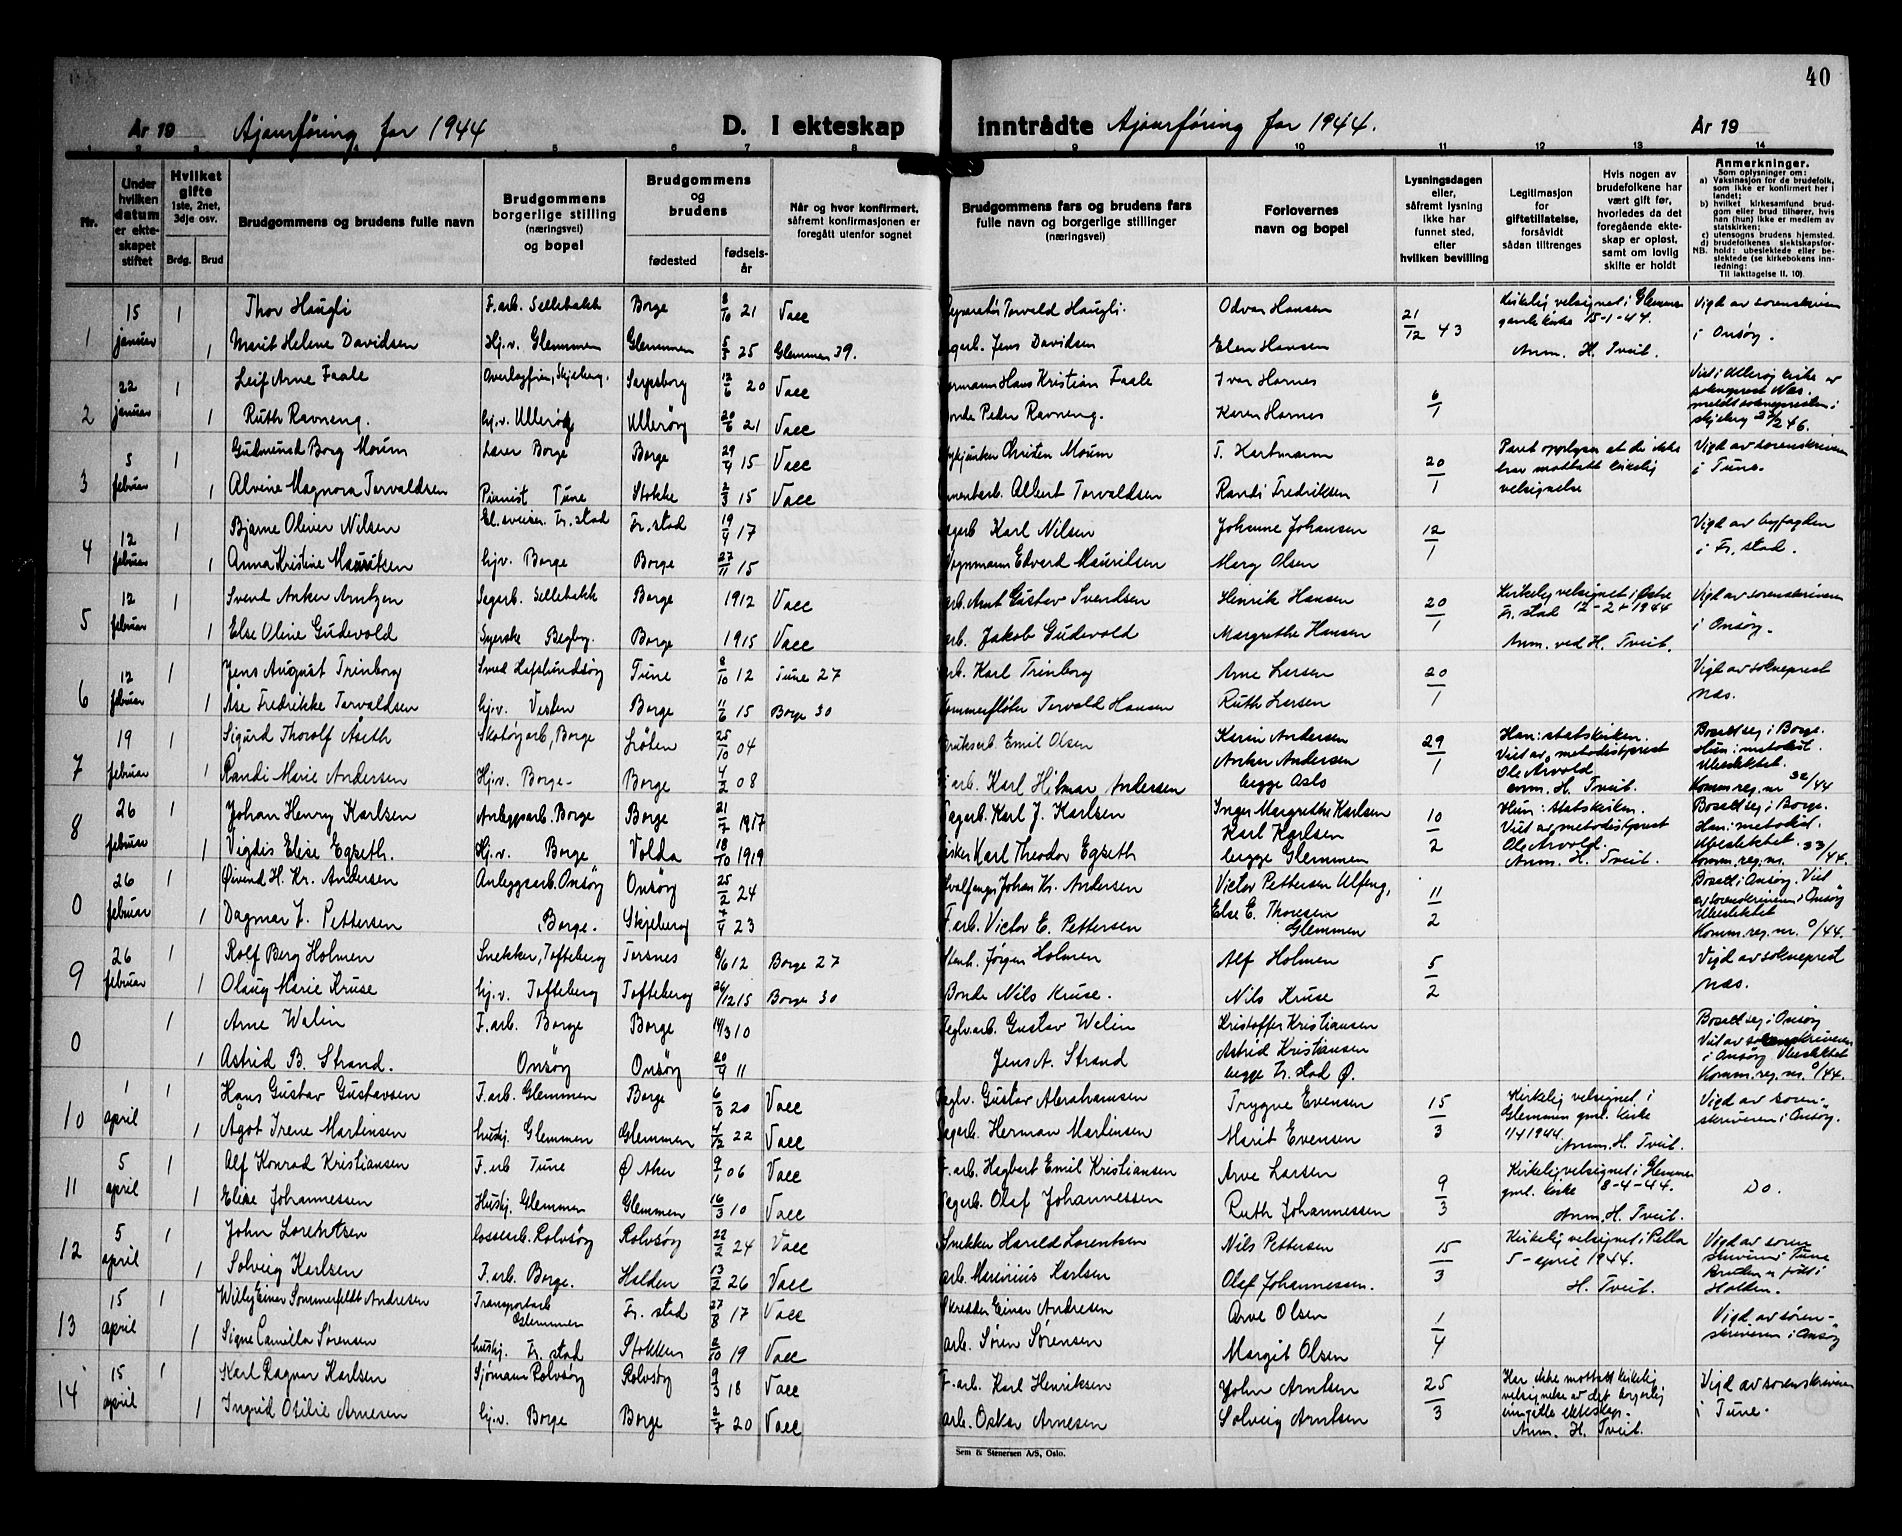 40
År 19 Ajourføring for 1944 D. I ekteskap inntrådte Ajourføring for 1944. År 19
1 2 3 5 6 7 8 9 10 11 12 13 14
Nr.
Under hvilken datum er ekteskapet stiftet
Hvilket gifte 1ste, 2net, 3dje osv.
Brdg. Brud
Brudgommens og brudens fulle navn
Brudgommens borgerlige stilling (næringsvei) og bopel
Brudgommens og brudens
fødested
fødselsår
Når og hvor konfirmert, såfremt konfirmasjonen er foregått utenfor sognet
Brudgommens fars og brudens fars fulle navn og borgerlige stillinger (næringsvei)
Forlovernes navn og bopel
Lysningsdagen eller, såfremt lysning ikke har funnet sted, eller hvilken bevilling
Legitimasjon for giftetillatelse, forsåvidt sådan tiltrenges
Hvis nogen av brudefolkene har vært gift før, hvorledes da det foregående ekteskap er opløst, samt om lovlig skifte er holdt
Anmerkninger.
Som oplysninger om:
a) Vaksinasjon for de brudefolk, som ikke er konfirmert her i landet;
b) hvilket kirkesamfund brudgom eller brud tilhører, hvis han (hun) ikke er medlem av statskirken;
c) utensogns brudens hjemsted.
d) brudefolkenes slektskapsforhold: ubeslektede eller beslektede (se kirkebokens innledning;
NB. Til iakttagelse II. 10).
1 15 januar 1 Thor Haugli F.arb. Sellebakk Borge 8/10 21 Vacc Torvald Haugli. Odvar Hansen 21/12 43 Kirkelig velsignet i Glemmen gamle kirke 15-1-44. Vigd av sorenskriveren
1 Marit Helene Davidsen Hj.v. Glemmen Glemmen 5/3 25 Glemmen 39. Jens Davidsen Elen Hansen Anm. H. Tveit. i Onsøy.
2 22 januar 1 Leif Arne Faale Skjeberg. Sarpsborg 12/6 20 Vacc Hans Kristian Faale Ivar Hornes 6/1 Viet i Ullerøy kirke av sogneprest Næs.
1 Ruth Ravneng. hj.v. Ullerøy Ullerøy 20/6 21 Vacc Peder Ravneng. Karen Hornes
3 5 februar 1 Gudmund Borg Moum Lærer Borge Borge 29/4 15 Vacc Christen Moum T. Hartmann 20/1 Paret opplyser at de ikke har mottatt kirkelig velsignelse Vigd av sorenskriveren
1 Alvine Magnora Torvaldsen Pianist Tune Stokke 2/3 15 Vacc Albert Torvaldsen Randi Fredriksen i Tune.
4 12 februar 1 Bjarne Oliver Nilsen El.sveiser Fr.stad Fr.stad 19/9 17 Karl Nilsen Johanne Johansen 12/1 Vigd av byfogden
1 Anna Kristine Mauritsen hjv. Borge Borge 27/11 15 Edvard Mauritsen Mary Olsen i Fr.stad.
5 12 februar 1 Svend Anker Arntzen Sagarb. Sellebakk Borge 1912 Vacc Arnt Gustav Svendsen Henrik Hansen 20/1 Kirkelig velsignet i Østre Fr.stad 12-2-1944 Vigd av sorenskriveren
1 Else Oline Gudevold Syerske Begby. Borge 1915 Vacc Jakob Gudevold Margrethe Hansen Anm. ved H. Tveit. i Onsøy.
6 12 februar 1 Jens August Trinborg Smed Hafslundsøy Tune 8/10 12 Tune 27 Karl Trinborg Arne Larsen 20/1 Vigd av sokneprest
1 Åse Fredrikke Torvaldsen hj.v. Visten Borge 11/6 15 Borge 30 Tømmerfløter Torvald Hansen Ruth Larsen Næs.
7 19 februar 1 Sigurd Thorolf Åseth Skotøyarb, Borge Løten 25/10 04 Emil Olsen Karin Andersen 29/1 Han: statskirken. Bosatt sej i Borge.
Anker Andersen Viet av metodistprest Hun: metodist.
1 Randi Marie Andersen Hj.v. Borge Borge 4/2 08 Karl Hilmar Andersen begge Oslo Ole Arvold. Ubeslektet.
anm. H. Tveit. Komm.reg.nr 32/44
8 26 februar 1 Johan Henry Karlsen Anleggsarb. Borge Borge 21/7 1917 Fagarb. Karl J. Karlsen Inger Margrethe Karlsen 10/2 Hun: Statskirken. Bosatt sej i Borge.
Karl Karlsen Viet av metodistprest Han: metodist.
1 Vigdis Elise Egseth. Hj.v. Borge Volda 18/10 1919 Fisker Karl Theodor Egseth begge Glemmen Ole Arvold. Ubeslektet.
Anm. H. Tveit. Komm.reg.nr. 33/44.
0 26 februar 1 Øivind H. Kr. Andersen Anleggsarb. Onsøy Onsøy 25/2 24 Hvalfanger Johan Kr. Andersen Victor Pettersen Ulfeng, 11/2 Bosatt i Onsøy. Viet av sorenskriveren i Onsøy
1 Dagmar J. Pettersen Borge. Skjeberg 7/4 23 F.arb. Victor E. Pettersen Else E. Thoresen Glemmen Ubeslektet Komm.reg.nr. 0/44.
9 26 februar 1 Rolf Berg Holmen Snekker, Tofteberg Torsnes 8/6 12 Borge 27 Stenh. Jørgen Holmen Alf Holmen 5/2 Vigd av sokneprest
1 Olaug Marie Kruse hj.v. Tofteberg Tofteberg 26/12 15 Borge 30 Bonde Nils Kruse. Nils Kruse Næs.
0 1 Arne Welin F.arb. Borge Borge 14/3 10 Teglv.arb. Gustav Welin Kristoffer Kristiansen Bosatt sej i Onsøy
1 Astrid B. Strand. Onsøy Onsøy 20/9 11 Jens A. Strand Astrid Kristiansen begge Fr.stad Ø. Viet av sorenskriveren i Onsøy Ubeslektet Komm.reg.nr. 0/44.
10 1 april 1 Hans Gustav Gustavsen F.arb. Glemmen Borge 6/3 20 Vacc Teglv. Gustav Abrahamsen Trygve Evensen 15/3 Kirkelig velsignet i Glemmen gml. kirke 1/4 1944. Vigd av sorenskriveren i Onsøy.
1 Ågot Irene Martinsen hushj. Glemmen Glemmen 4/12 22 Vacc Sagarb. Herman Martinsen Marit Evensen Anm. H. Tveit.
11 5 april 1 Alf Konrad Kristiansen F.arb Tune Ø Aker 9/1 06 Vacc F.arb. Hagbart Emil Kristiansen Arve Larsen 9/3 Kirkelig velsignet i Glemmen gml. kirke 8-4-44. Do.
1 Elise Johannessen Hushj. Glemmen Glemmen 16/3 10 Vacc Sagarb. Olaf Johannessen Ruth Johannessen Anm. H. Tveit.
12 5 april 1 John Lorentsen Losserb. Rolvsøy Rolvsøy 22/2 24 Vacc Snekker Harald Lorentsen Nils Pettersen 15/3 Kirkelig velsignet i Pella 5-april 1944. Vigd av sorenskriveren i Tune
1 Solveig Karlsen F.arb. Borge. Halden 13/2 26 Vacc arb. Marinius Karlsen Olaf Johannessen. H. Tveit. Bruden er født i Halden.
13 15 april 1 Willy Einar Sommerfeldt Andresen Transportarb Glemmen Fr.stad 27/8 17 Vacc Skredder Einar Andresen Arve Olsen 1/4 Vigd av sorenskriveren i Onsøy
1 Signe Camilla Sørensen hushj. Fr.stad Stokken 8/10 19 Vacc arb. Søren Sørensen Margit Olsen
14 15 april 1 Karl Ragnar Karlsen Sjømann Rolvsøy Rolvsøy 9/3 18 Vacc F.arb. Karl Henriksen John Arntsen 25/3 Har ikke mottatt kirkelig velsignelse av det borgerlig inngåtte ekteskap. Vigd av sorenskriveren
1 Ingrid Otilie Arnesen hj.v. Borge Borge 2/7 20 Vacc arb. Oskar Arnesen Solveig Arntsen Anm. H. Tveit. i Tune.
Sem & Stenersen A/S, Oslo.